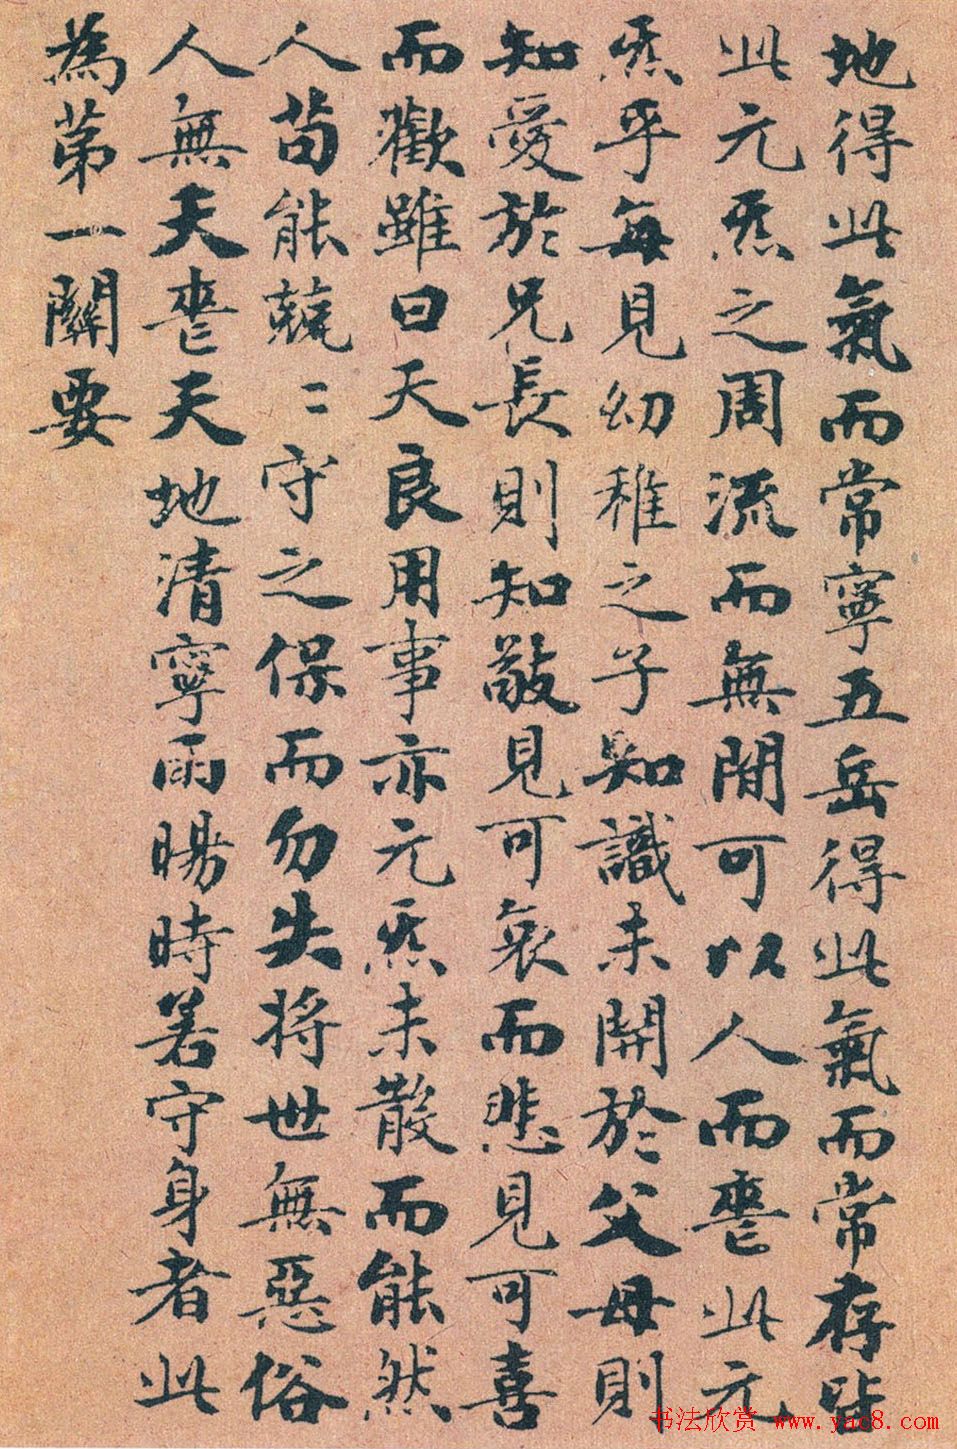 地得此氣而常寧五岳得此氣而常存皆
此元炁之周流而無閒可以人而喪此元
炁乎每見幼稚之子知識未開於父母則
知愛於兄長則知敬見可哀而悲見可喜
而歡雖曰天良用事亦元炁未散而能然
人苟能兢〻守之保而勿失將世無惡俗
人無夭喪天地清寧雨暘時若守身者此
為第一關要
书法欣赏 www.yac8.com